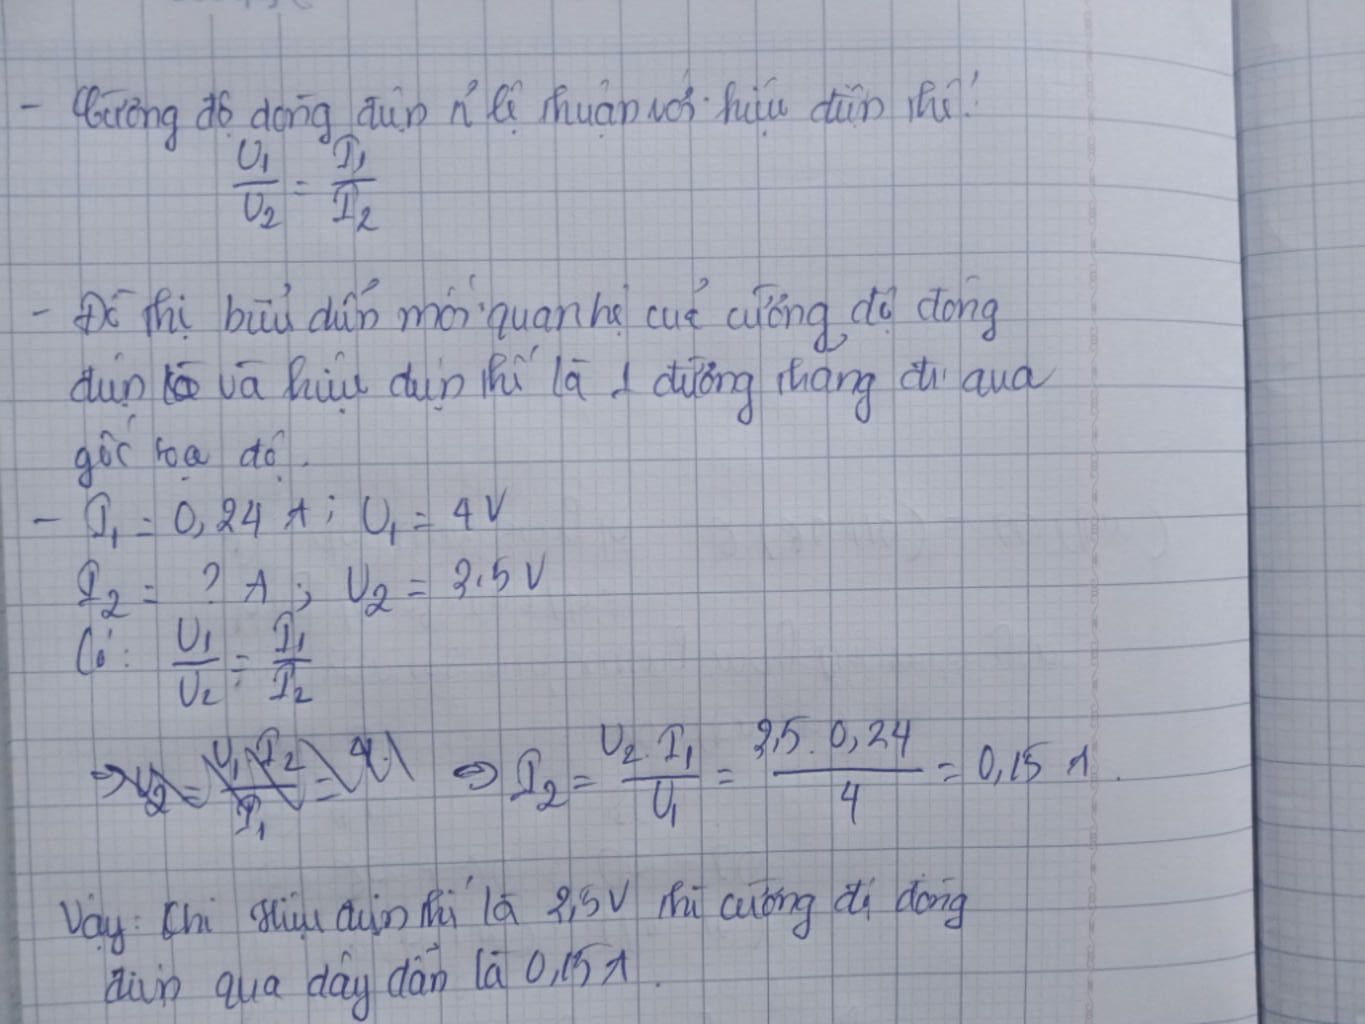 - Cường độ dòng điện tỉ lệ thuận với hiệu điện thế:
U₁/U₂ = I₁/I₂
- Đồ thị biểu diễn mối quan hệ của cường độ dòng
điện và hiệu điện thế là 1 đường thẳng đi qua
gốc toạ độ.
- I₁ = 0,24 A; U₁ = 4V
I₂ = ? A; U₂ = 2.5V
Có: U₁/U₂ = I₁/I₂
⇒ I₂ = U₂.I₁/U₁ = 2,5.0,24/4 = 0,15 A.
Vậy: Khi hiệu điện thế là 2,5V thì cường độ dòng
điện qua dây dẫn là 0,15A.